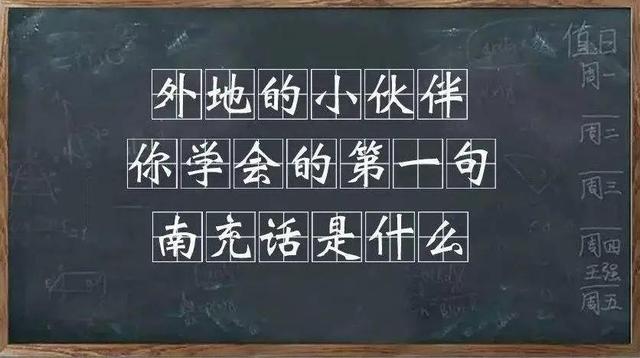 外地的小伙伴
你学会的第一句
南充话是什么
值日
周一
周二
周三
周四
王强
周五